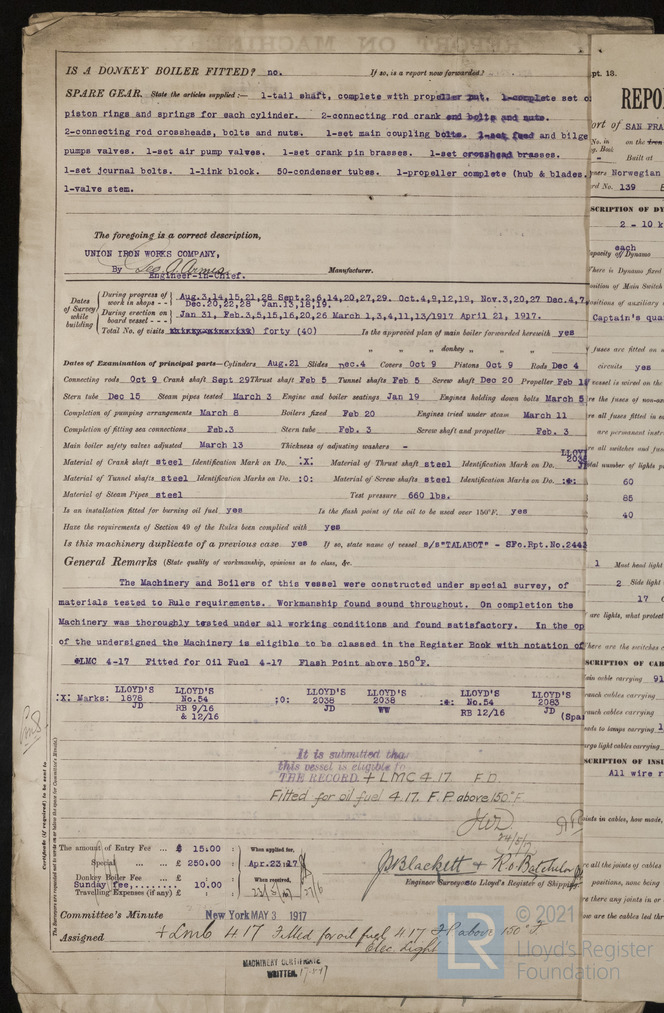 IS A DONKEY BOILER FITTED? no. If so, is a report now forwarded?
SPARE GEAR. State the articles supplied:— 1-tail shaft, complete with propeller nut. 1-complete set o
piston rings and springs for each cylinder. 2-connecting rod crank end bolts and nuts.
2-connecting rod crossheads, bolts and nuts. 1-set main coupling bolts. 1-set feed and bilge
pumps valves. 1-set air pump valves. 1-set crank pin brasses. 1-set crosshead brasses.
1-set journal bolts. 1-link block. 50-condenser tubes. 1-propeller complete (hub & blades.
1-valve stem.
The foregoing is a correct description,
UNION IRON WORKS COMPANY,
By Manufacturer.
Engineer-in-Chief.
Dates of Survey while building
During progress of work in shops - - Aug.3,14,15,21,28 Sept.2,6,14,20,27,29. Oct.4,9,12,19, Nov.3,20,27 Dec.4,7,
Dec.20,22,28 Jan.13,18,19.
During erection on board vessel - - - Jan 31, Feb.3,5,15,16,20,26 March 1,3,4,11,13/1917 April 21, 1917.
Total No. of visits forty (40) Is the approved plan of main boiler forwarded herewith yes
" " donkey " " "
Dates of Examination of principal parts—Cylinders Aug.21 Slides Dec.4 Covers Oct 9 Pistons Oct 9 Rods Dec 4
Connecting rods Oct 9 Crank shaft Sept 29 Thrust shaft Feb 5 Tunnel shafts Feb 5 Screw shaft Dec 20 Propeller Feb
Stern tube Dec 15 Steam pipes tested March 3 Engine and boiler seatings Jan 19 Engines holding down bolts March 5
Completion of pumping arrangements March 8 Boilers fixed Feb 20 Engines tried under steam March 11
Completion of fitting sea connections Feb.3 Stern tube Feb. 3 Screw shaft and propeller Feb. 3
Main boiler safety valves adjusted March 13 Thickness of adjusting washers -
Material of Crank shaft steel Identification Mark on Do. :X: Material of Thrust shaft steel Identification Mark on Do. LLOY 2038 J
Material of Tunnel shafts steel Identification Marks on Do. :O: Material of Screw shafts steel Identification Marks on Do.
Material of Steam Pipes steel Test pressure 660 lbs.
Is an installation fitted for burning oil fuel yes Is the flash point of the oil to be used over 150°F. yes
Have the requirements of Section 49 of the Rules been complied with yes
Is this machinery duplicate of a previous case yes If so, state name of vessel s/s"TALABOT" - SFo.Rpt.No.2443
General Remarks (State quality of workmanship, opinions as to class, &c.
The Machinery and Boilers of this vessel were constructed under special survey, of
materials tested to Rule requirements. Workmanship found sound throughout. On completion the
Machinery was thoroughly tested under all working conditions and found satisfactory. In the op
of the undersigned the Machinery is eligible to be classed in the Register Book with notation of
LMC 4-17 Fitted for Oil Fuel 4-17 Flash Point above 150°F.
:X: Marks: LLOYD'S LLOYD'S :O: LLOYD'S LLOYD'S LLOYD'S LLOYD'S
1878 No.54 2038 2038 No.54 2083
JD RB 9/16 JD WW RB 12/16 JD
& 12/16 (Spa
It is submitted tha
this vessel is eligible fo
THE RECORD. + LMC 4.17 F.D.
Fitted for oil fuel 4.17. F.P. above 150°F.
The amount of Entry Fee ... £ 15.00 : When applied for,
Special ... ... £ 250.00 : Apr.23.17
Donkey Boiler Fee ... £ : When received,
Sunday fee,........ 10.00
Travelling Expenses (if any) £
J Blackett + R. o. Batchelor
Engineer Surveyors to Lloyd's Register of Shipping
Committee's Minute New York MAY 3 1917
Assigned + LMC 4.17 Fitted for oil fuel 4.17 F.P. above 150°F.
Elec. Light
MACHINERY CERTIFICATE
WRITTEN.
Certificate (if required) to be sent to
(The Surveyors are requested not to write on or below the space for Committee's Minute)
pt. 13.
REPO
ort of SAN FRA
No. in
g. Book
on the Iron
Built at
ners Norwegian
rd No. 139
SCRIPTION OF DY
2 - 10 k
each
apacity of Dynamo
here is Dynamo fixed
osition of Main Switch
ositions of auxiliary
Captain's qua
fuses are fitted on
circuits yes
vessel is wired on the
re the fuses of non-
re all fuses fitted in
are permanent
re all switches and
otal number of lights
60
85
40
1 Mast head light
2 Side light
17
are lights, what protect
here are the switches
SCRIPTION OF CAB
ain cable carrying 91
ranch cables carrying
ranch cables carrying
ads to lamps carrying 1
argo light cables carrying
SCRIPTION OF INSU
All wire r
oints in cables, how made,
re all the joints of cables
positions, none being
re there any joints in or
ow are the cables led
© 2021
Lloyd's Register
Foundation
LR